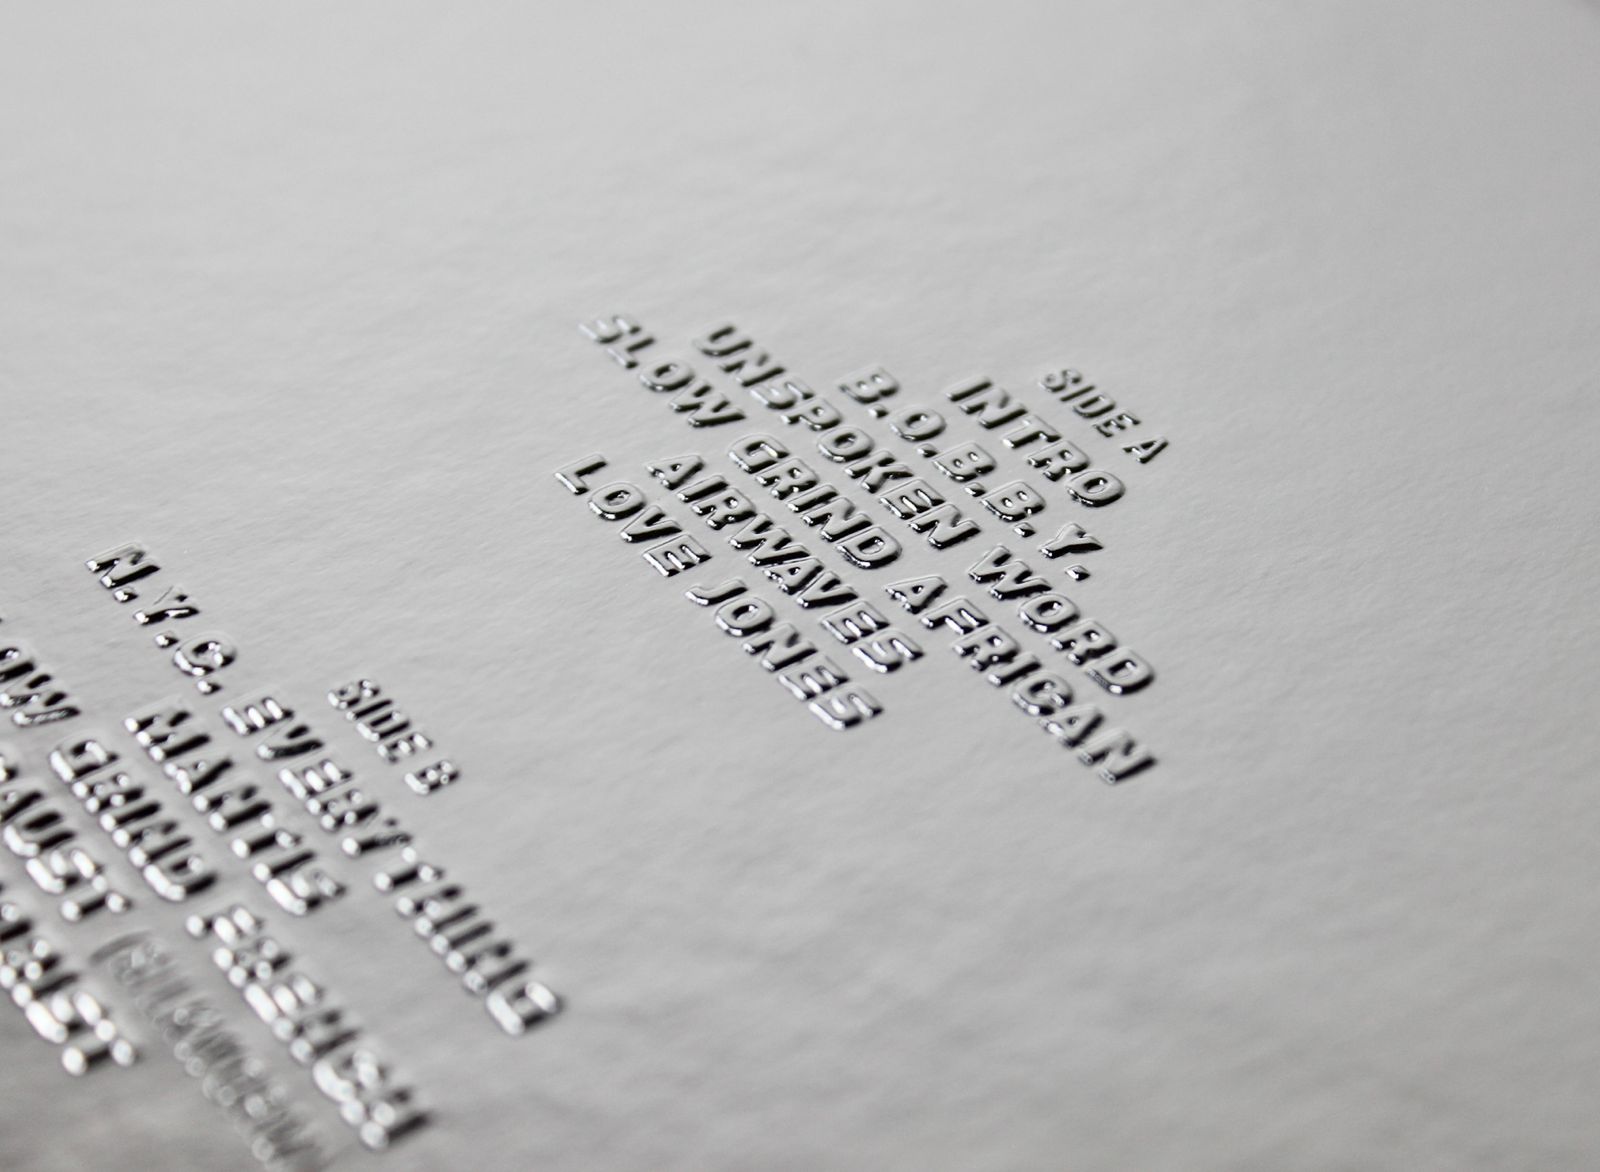 SIDE A
INTRO
B.O.B.B.Y.
UNSPOKEN WORD
SLOW GRIND AFRICAN
AIRWAVES
LOVE JONES
SIDE B
N.Y.C. EVERYTHING
MANTIS
GRIND FRENCH